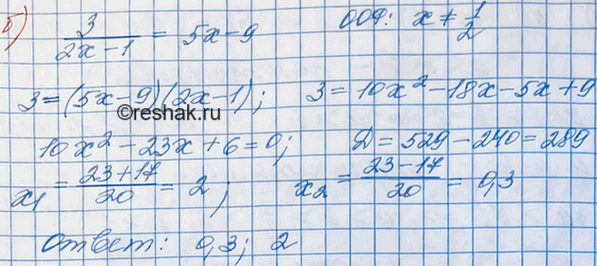 б) 3/(2x-1) = 5x-9 ООФ: x ≠ 1/2
3=(5x-9)(2x-1); 3=10x²-18x-5x+9
©reshak.ru
10x²-23x+6=0; Д=529-240=289
x₁ = (23+17)/20 = 2; x₂ = (23-17)/20 = 0,3
Ответ: 0,3; 2